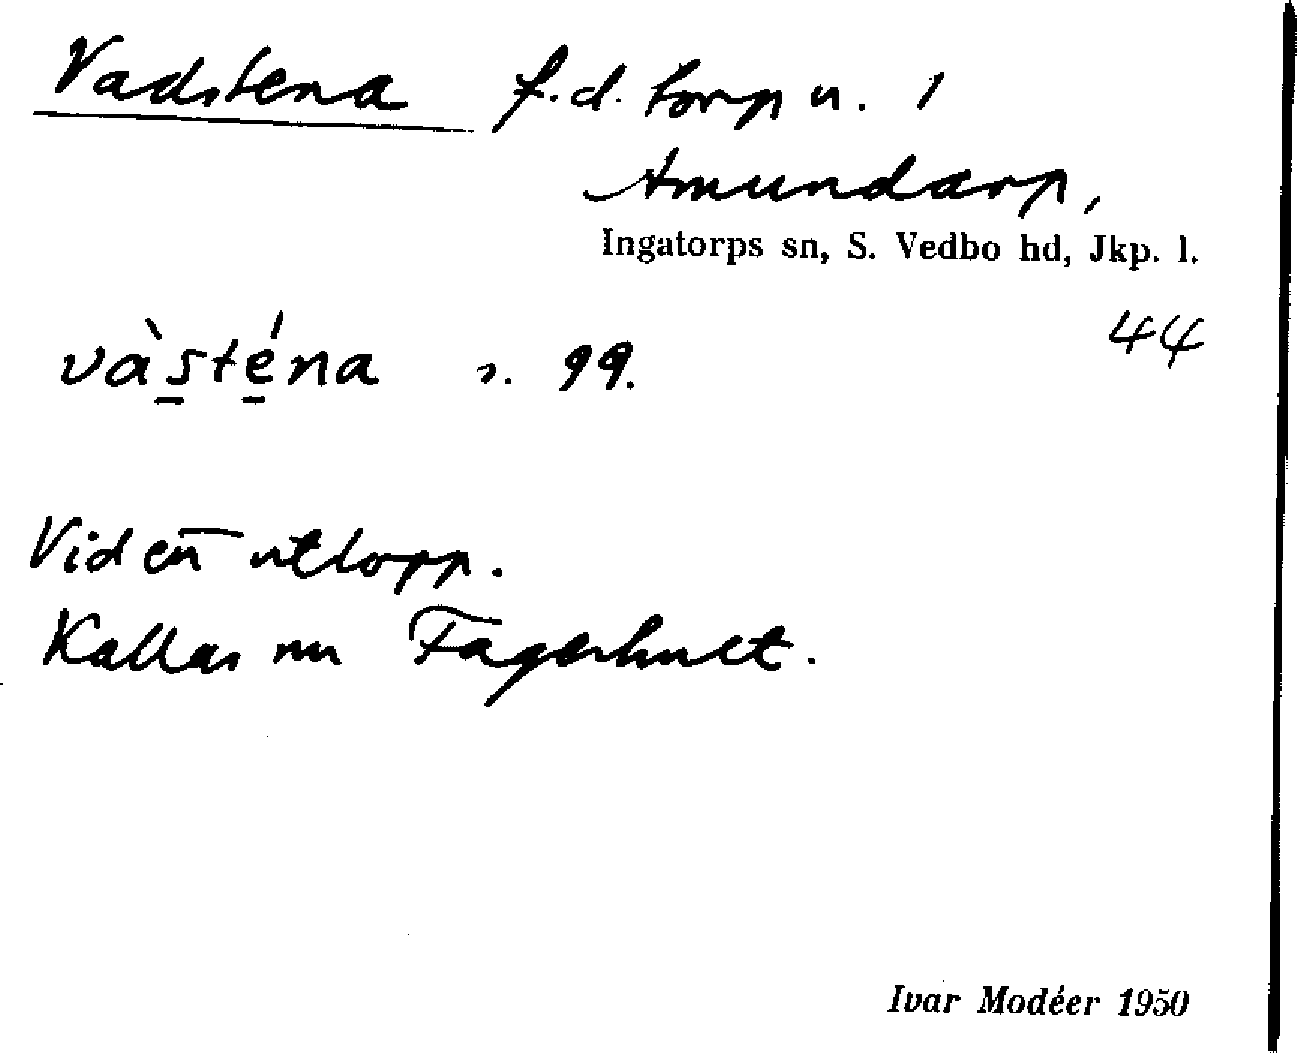 Vadstena f.d. torp u. 1
Amundarp,
Ingatorps sn, S. Vedbo hd, Jkp. l.
44
vàsténa s. 99.
Vid en utlopp.
Kallas nu Fagerhult.
Ivar Modéer 1950